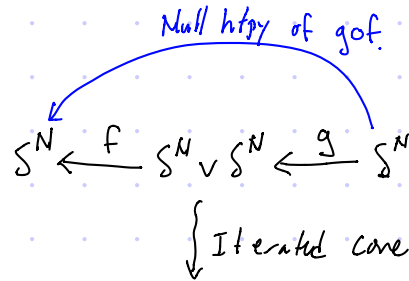 Null htpy of gof.
S^N ←f— S^N ∨ S^N ←g— S^N
Iterated cone